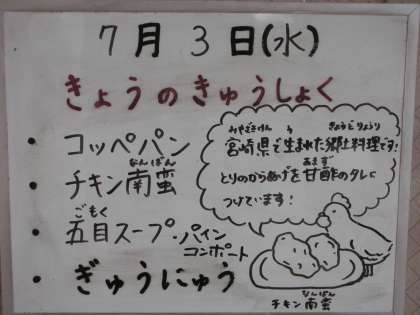 7月3日(水)
きょうのきゅうしょく
・コッペパン
・チキン南蛮
なんばん
・五目スープ・パインコンポート
ごもく
・ぎゅうにゅう
宮崎県で生まれた郷土料理です!
みやざきけん う きょうどりょうり
とりのからあげを甘酢のタレに
あまず
つけています!
チキン南蛮
なんばん